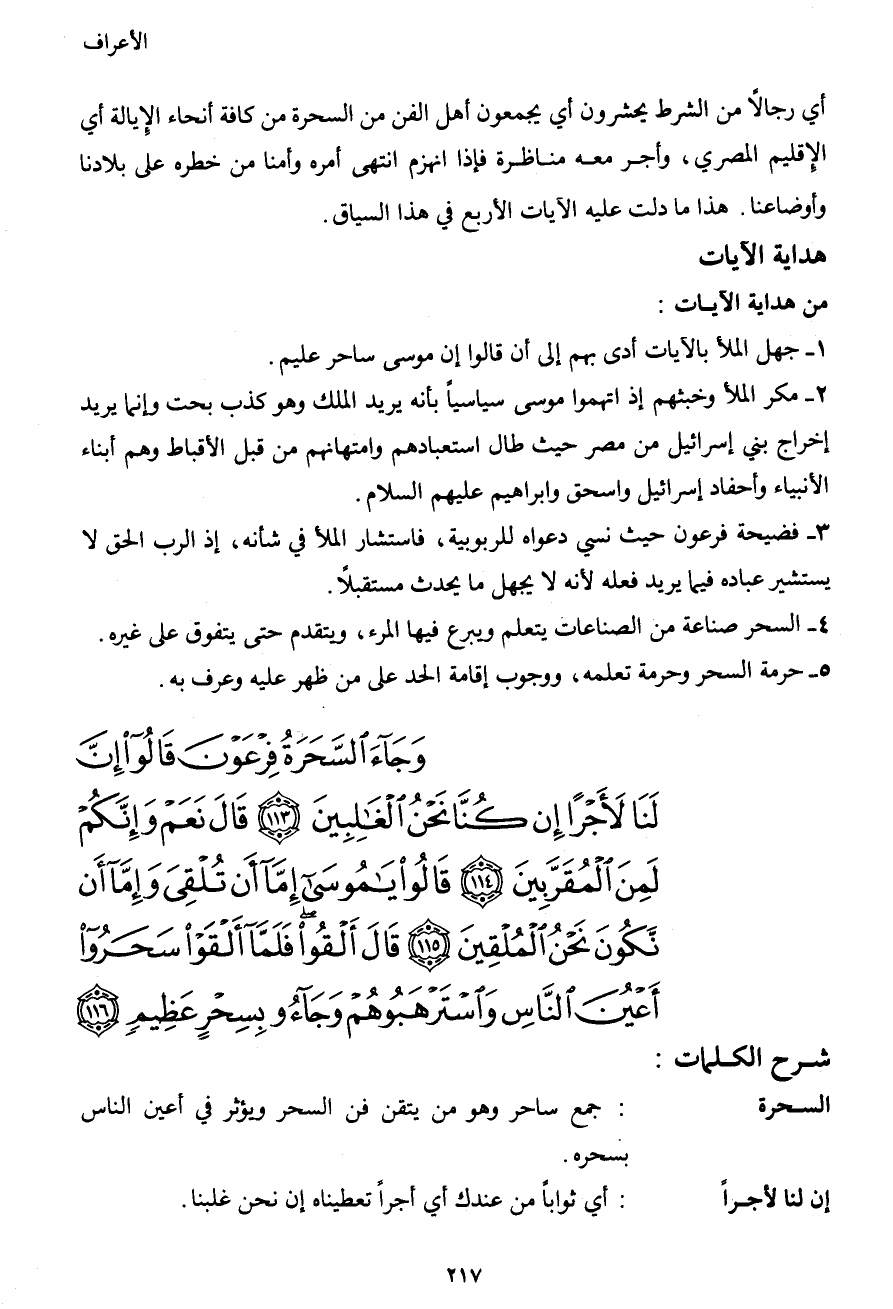 الأعراف
أي رجالاً من الشرط يحشرون أي يجمعون أهل الفن من السحرة من كافة أنحاء الإيالة أي
الإقليم المصري، وأجر معه مناظرة فإذا انهزم انتهى أمره وأمنا من خطره على بلادنا
وأوضاعنا. هذا ما دلت عليه الآيات الأربع في هذا السياق.
هداية الآيات
من هداية الآيات :
١ـ جهل الملأ بالآيات أدى بهم إلى أن قالوا إن موسى ساحر عليم.
٢ـ مكر الملأ وخبثهم إذ اتهموا موسى سياسياً بأنه يريد الملك وهو كذب بحت وإنما يريد
إخراج بني إسرائيل من مصر حيث طال استعبادهم وامتهانهم من قبل الأقباط وهم أبناء
الأنبياء وأحفاد إسرائيل واسحق وابراهيم عليهم السلام.
٣ـ فضيحة فرعون حيث نسي دعواه للربوبية، فاستشار الملأ في شأنه، إذ الرب الحق لا
يستشير عباده فيما يريد فعله لأنه لا يجهل ما يحدث مستقبلاً.
٤ـ السحر صناعة من الصناعات يتعلم ويبرع فيها المرء، ويتقدم حتى يتفوق على غيره.
٥ـ حرمة السحر وحرمة تعلمه، ووجوب إقامة الحد على من ظهر عليه وعرف به.
وَجَآءَ ٱلسَّحَرَةُ فِرْعَوْنَ قَالُوٓا۟ إِنَّ
لَنَا لَأَجْرًا إِن كُنَّا نَحْنُ ٱلْغَـٰلِبِينَ ١١٣ قَالَ نَعَمْ وَإِنَّكُمْ
لَمِنَ ٱلْمُقَرَّبِينَ ١١٤ قَالُوا۟ يَـٰمُوسَىٰٓ إِمَّآ أَن تُلْقِىَ وَإِمَّآ أَن
نَّكُونَ نَحْنُ ٱلْمُلْقِينَ ١١٥ قَالَ أَلْقُوا۟ۖ فَلَمَّآ أَلْقَوْا۟ سَحَرُوٓا۟
أَعْيُنَ ٱلنَّاسِ وَٱسْتَرْهَبُوهُمْ وَجَآءُو بِسِحْرٍ عَظِيمٍ ١١٦
شرح الكلمات :
السحرة : جمع ساحر وهو من يتقن فن السحر ويؤثر في أعين الناس
بسحره.
إن لنا لأجراً : أي ثواباً من عندك أي أجراً تعطيناه إن نحن غلبنا.
٢١٧